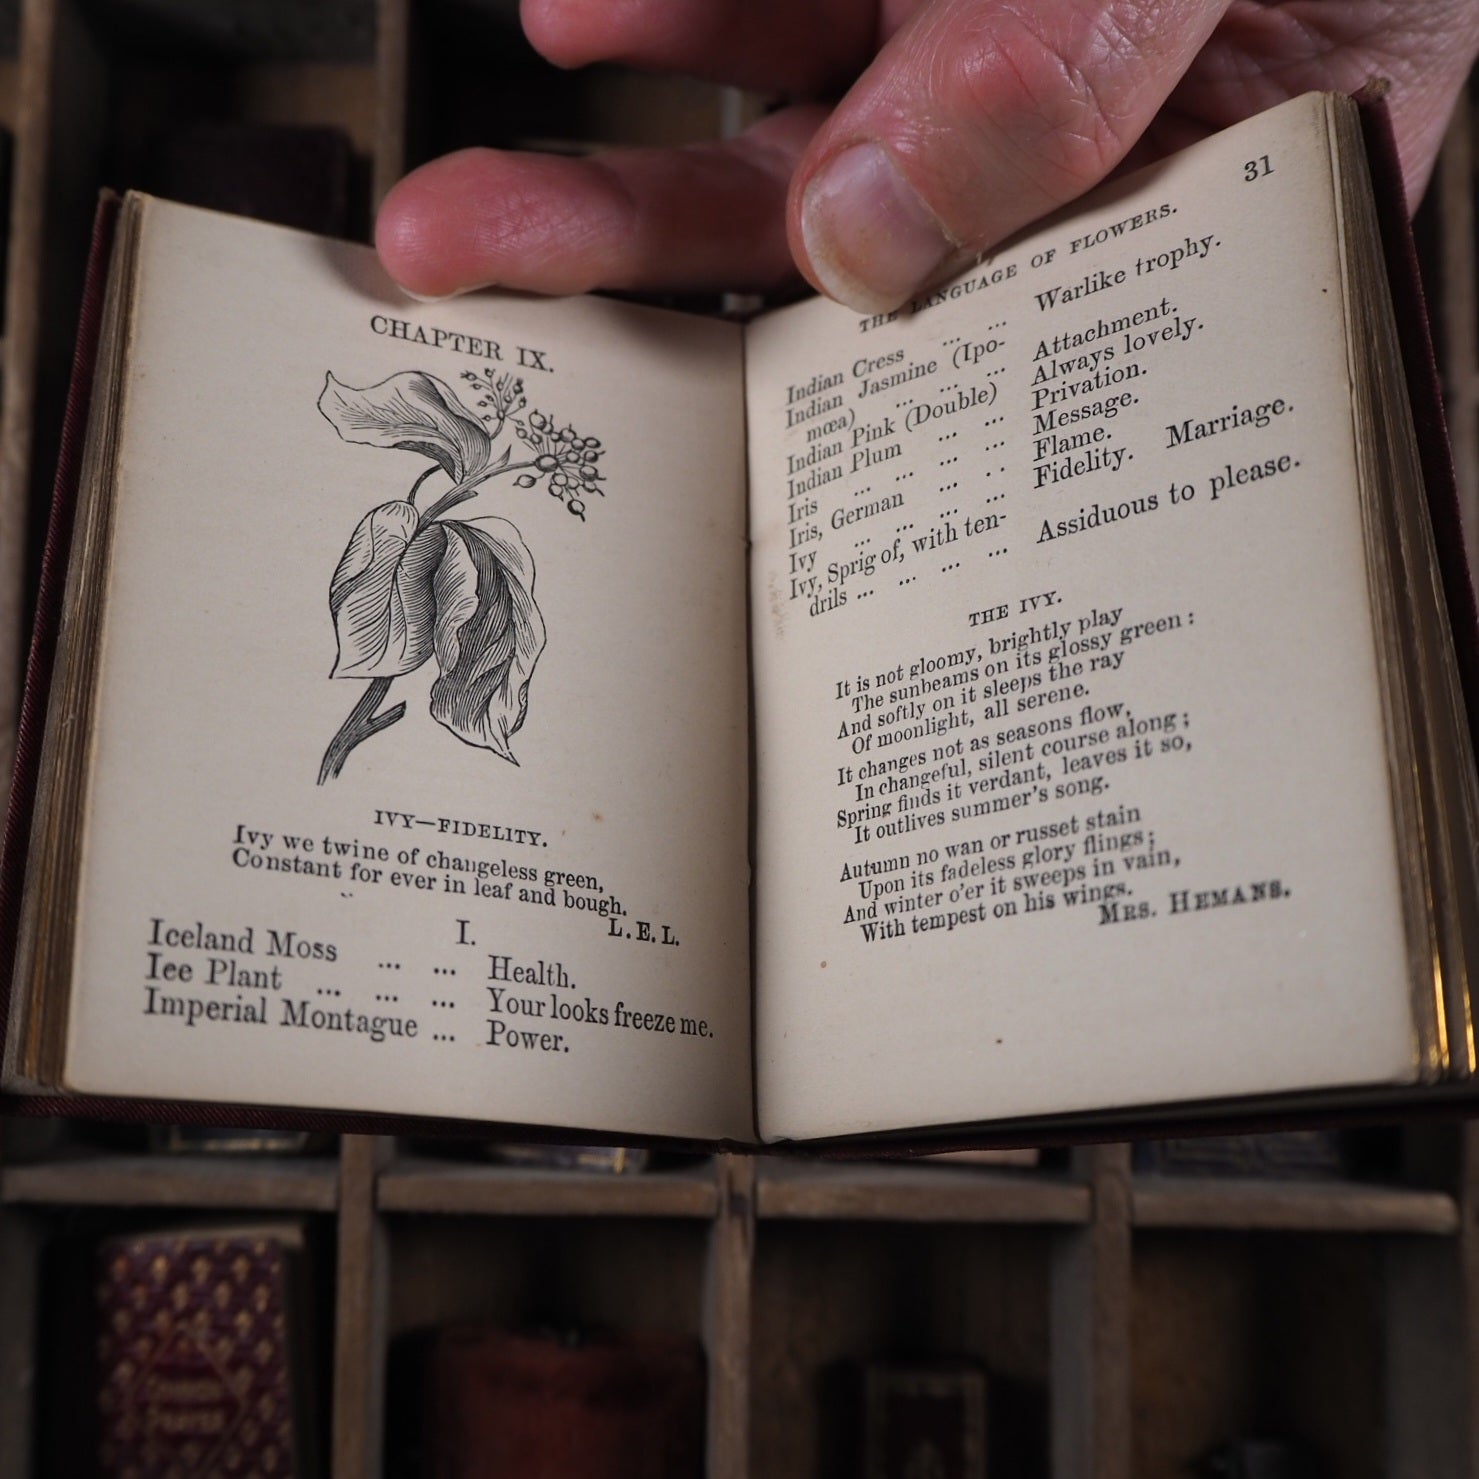 CHAPTER IX.
IVY—FIDELITY.
Ivy we twine of changeless green,
Constant for ever in leaf and bough.
L.E.L.
I.
Iceland Moss ... ... Health.
Ice Plant ... ... ... Your looks freeze me.
Imperial Montague ... Power.
31
THE LANGUAGE OF FLOWERS.
Indian Cress ... ... Warlike trophy.
Indian Jasmine (Ipo-
mœa) ... ... ... Attachment.
Indian Pink (Double) Always lovely.
Indian Plum ... ... Privation.
Iris ... ... ... ... Message.
Iris, German ... .. Flame.
Ivy ... ... ... ... Fidelity. Marriage.
Ivy, Sprig of, with ten-
drils ... ... ... ... Assiduous to please.
THE IVY.
It is not gloomy, brightly play
The sunbeams on its glossy green:
And softly on it sleeps the ray
Of moonlight, all serene.
It changes not as seasons flow,
In changeful, silent course along;
Spring finds it verdant, leaves it so,
It outlives summer's song.
Autumn no wan or russet stain
Upon its fadeless glory flings;
And winter o'er it sweeps in vain,
With tempest on his wings.
MRS. HEMANS.
COMMON
PRAYER